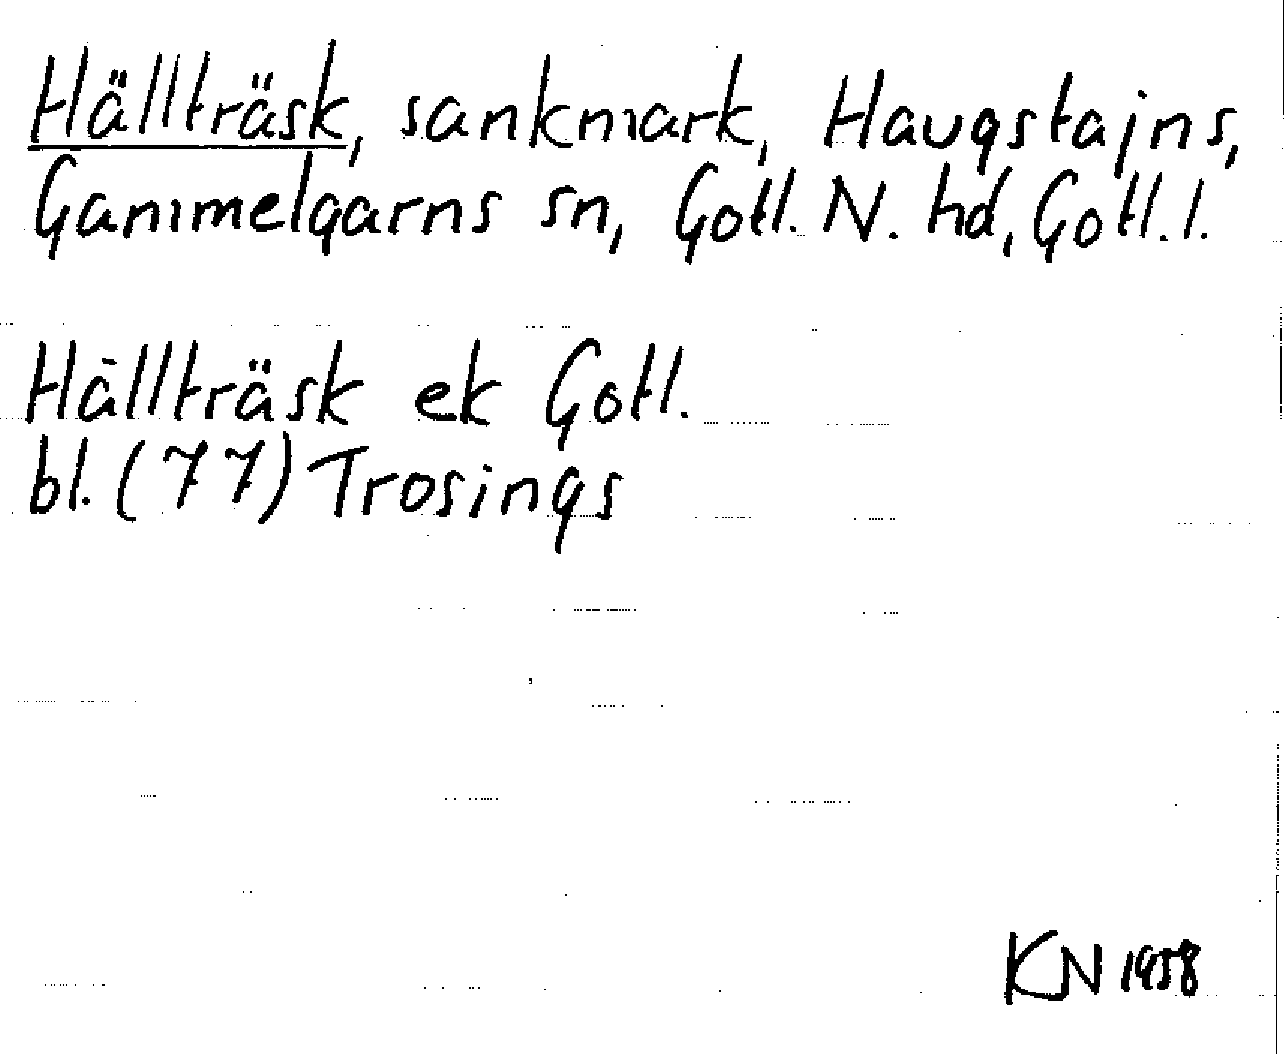 Hällträsk, sankmark, Haugstajns,
Gammelgarns sn, Gotl. N. hd, Gotl. l.
Hällträsk ek Gotl.
bl. (77) Trosings
KN 1958